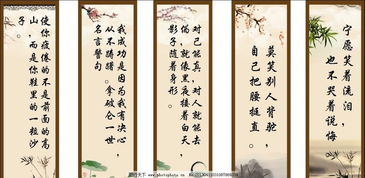 使你疲倦的不是前面的高
山，而是你鞋里的一粒沙
子。
我成功是因为我有决心，
从不踌躇。拿破仑一世
名言警句
对己能真，对人就能去
伪，就像黑夜接着白天
影子随着身形。
莫笑别人背驼，
自己把腰挺直。
宁愿笑着流泪，
也不哭着说悔